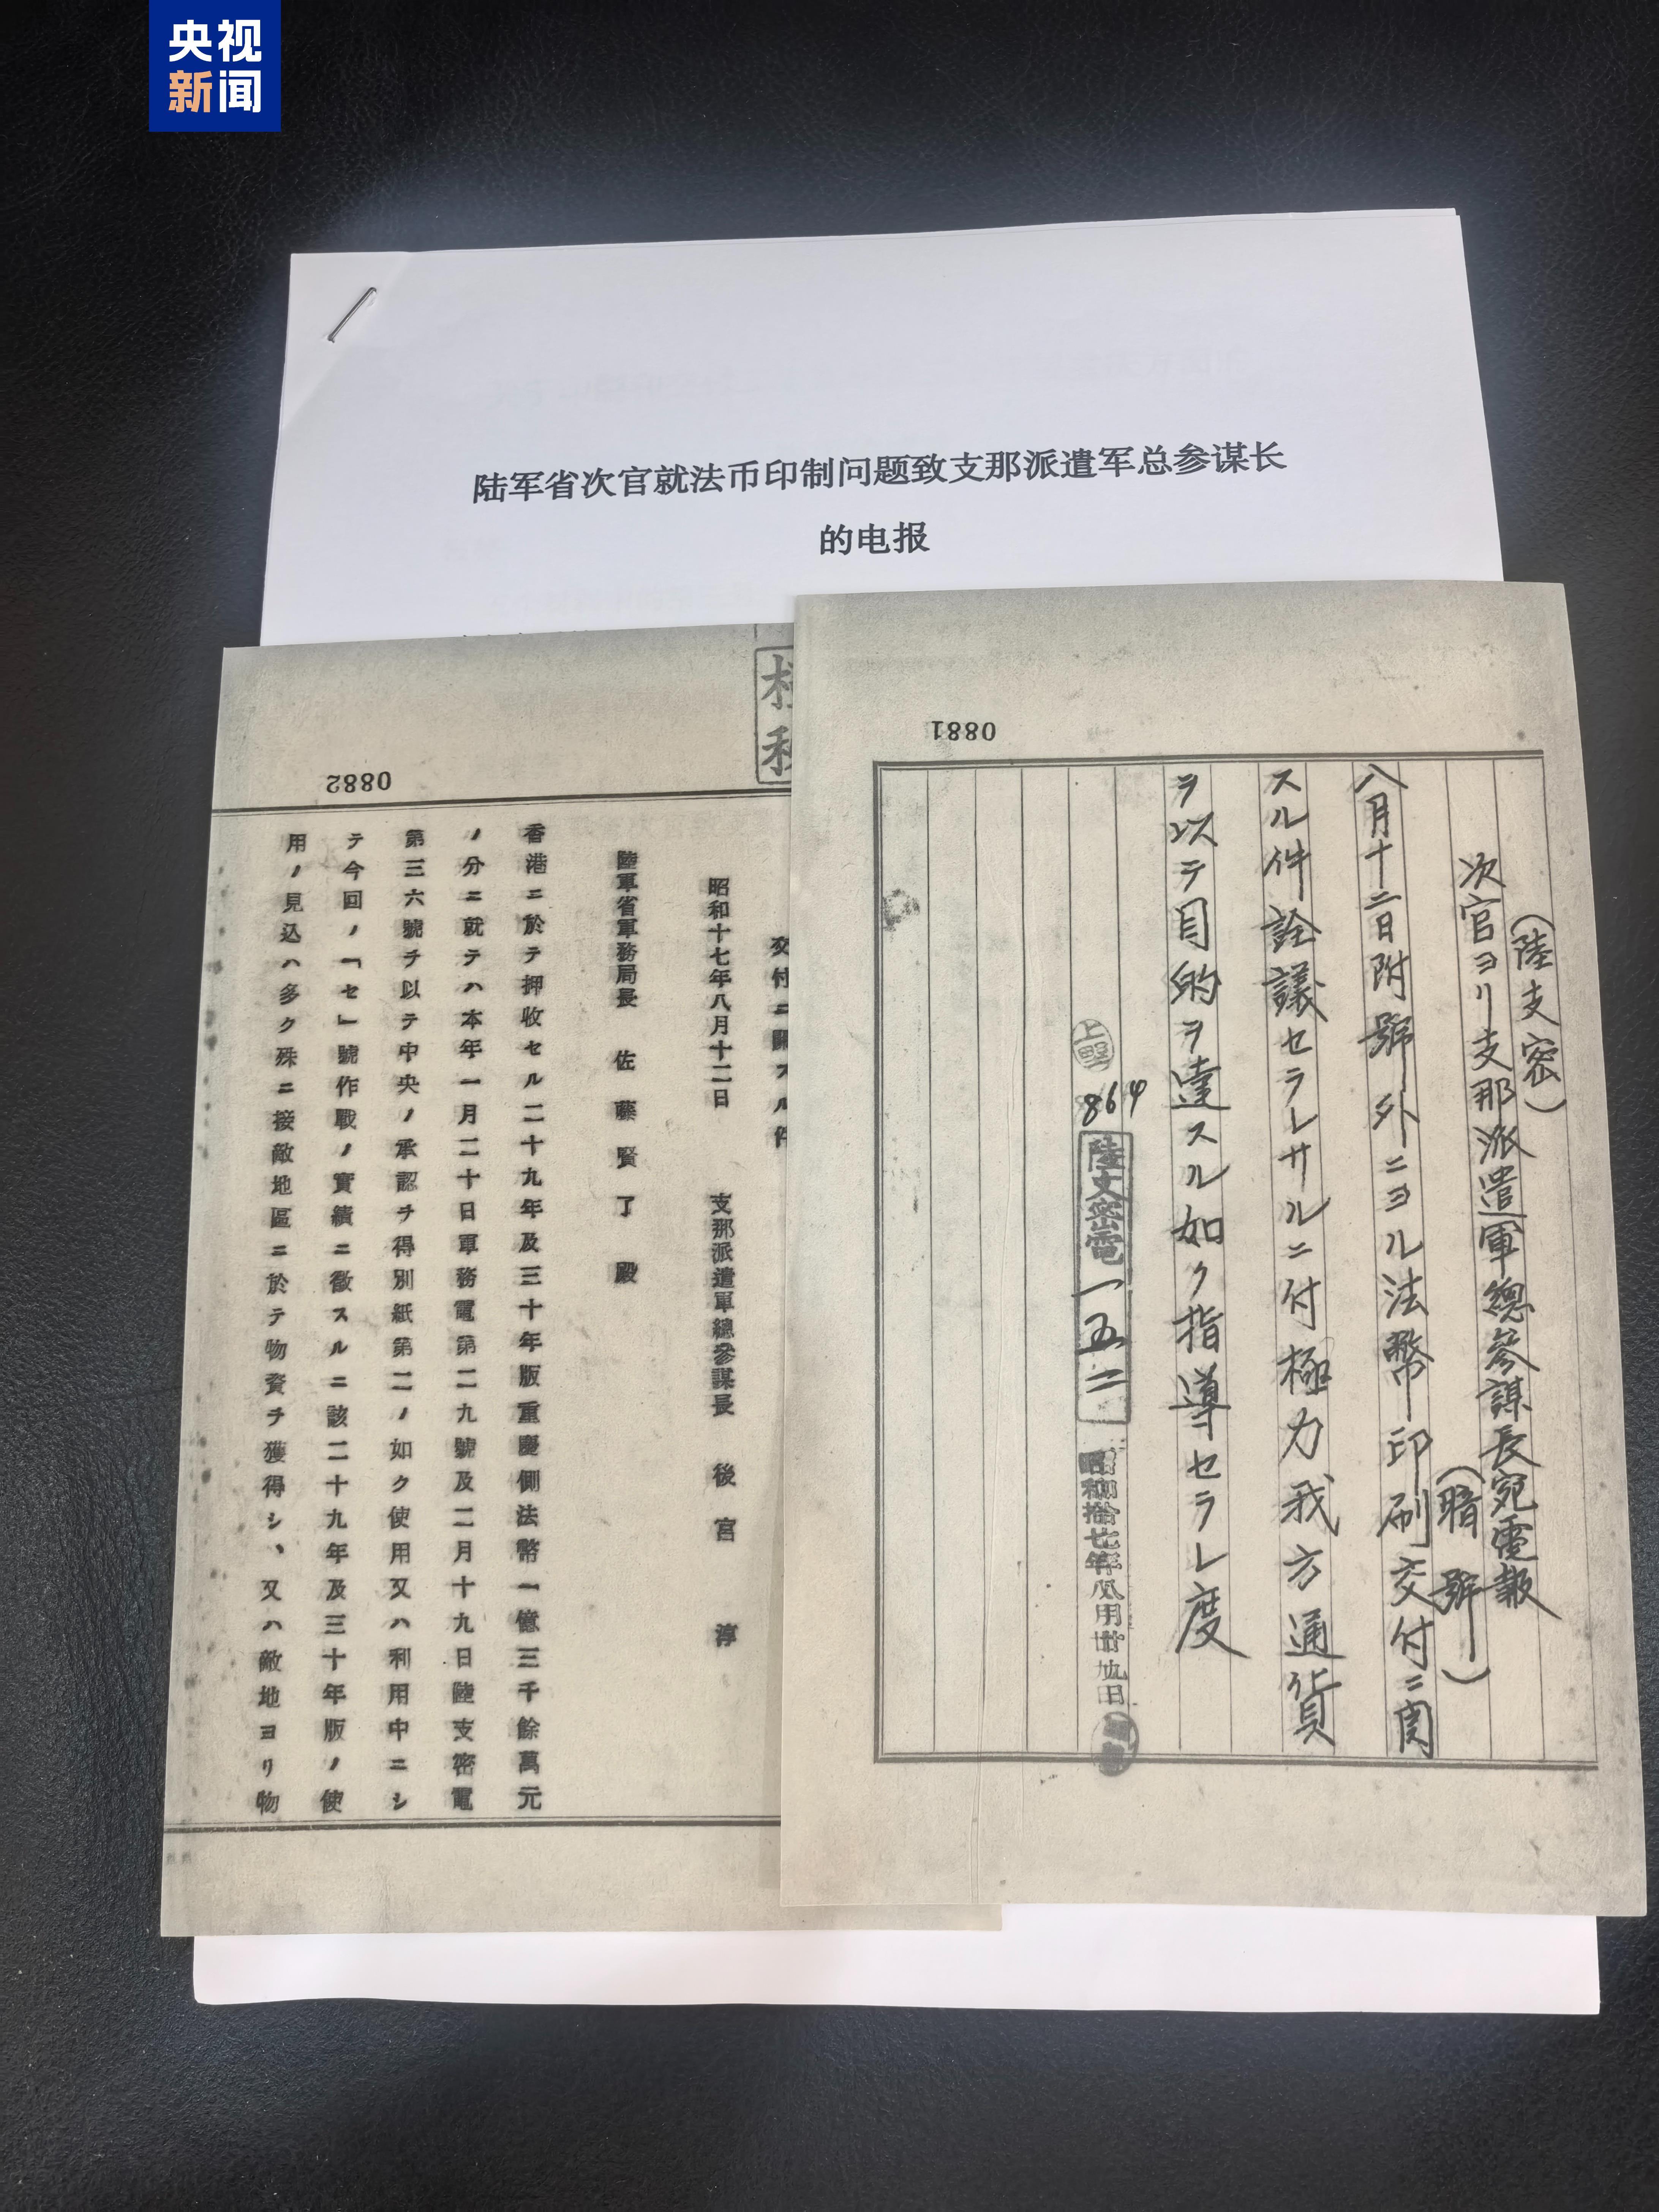 央视
新闻
陆军省次官就法币印制问题致支那派遣军总参谋长
的电报
0881
(陸支密)
次官ヨリ支那派遣軍總參謀長宛電報
(暗號)
八月十二日附號外ニヨル法幣印刷交付ニ関
スル件詮議セラレサルニ付極力我方通貨
ヲ以テ目的ヲ達スル如ク指導セラレ度
上野
864
陸支密電一五二
0882
昭和十七年八月十二日 支那派遣軍總參謀長 後宮 淳
陸軍省軍務局長 佐藤賢了 殿
香港ニ於テ押收セル二十九年及三十年版重慶側法幣一億三千餘萬元
ノ分ニ就テハ本年一月二十日軍務電第二九號及二月十九日陸支密電
第三六號ヲ以テ中央ノ承認ヲ得別紙第二ノ如ク使用又ハ利用中ニシ
テ今回ノ「セ」號作戰ノ實績ニ徵スルニ該二十九年及三十年版ノ使
用ノ見込ハ多ク殊ニ接敵地區ニ於テ物資ヲ獲得シ、又ハ敵地ヨリ物